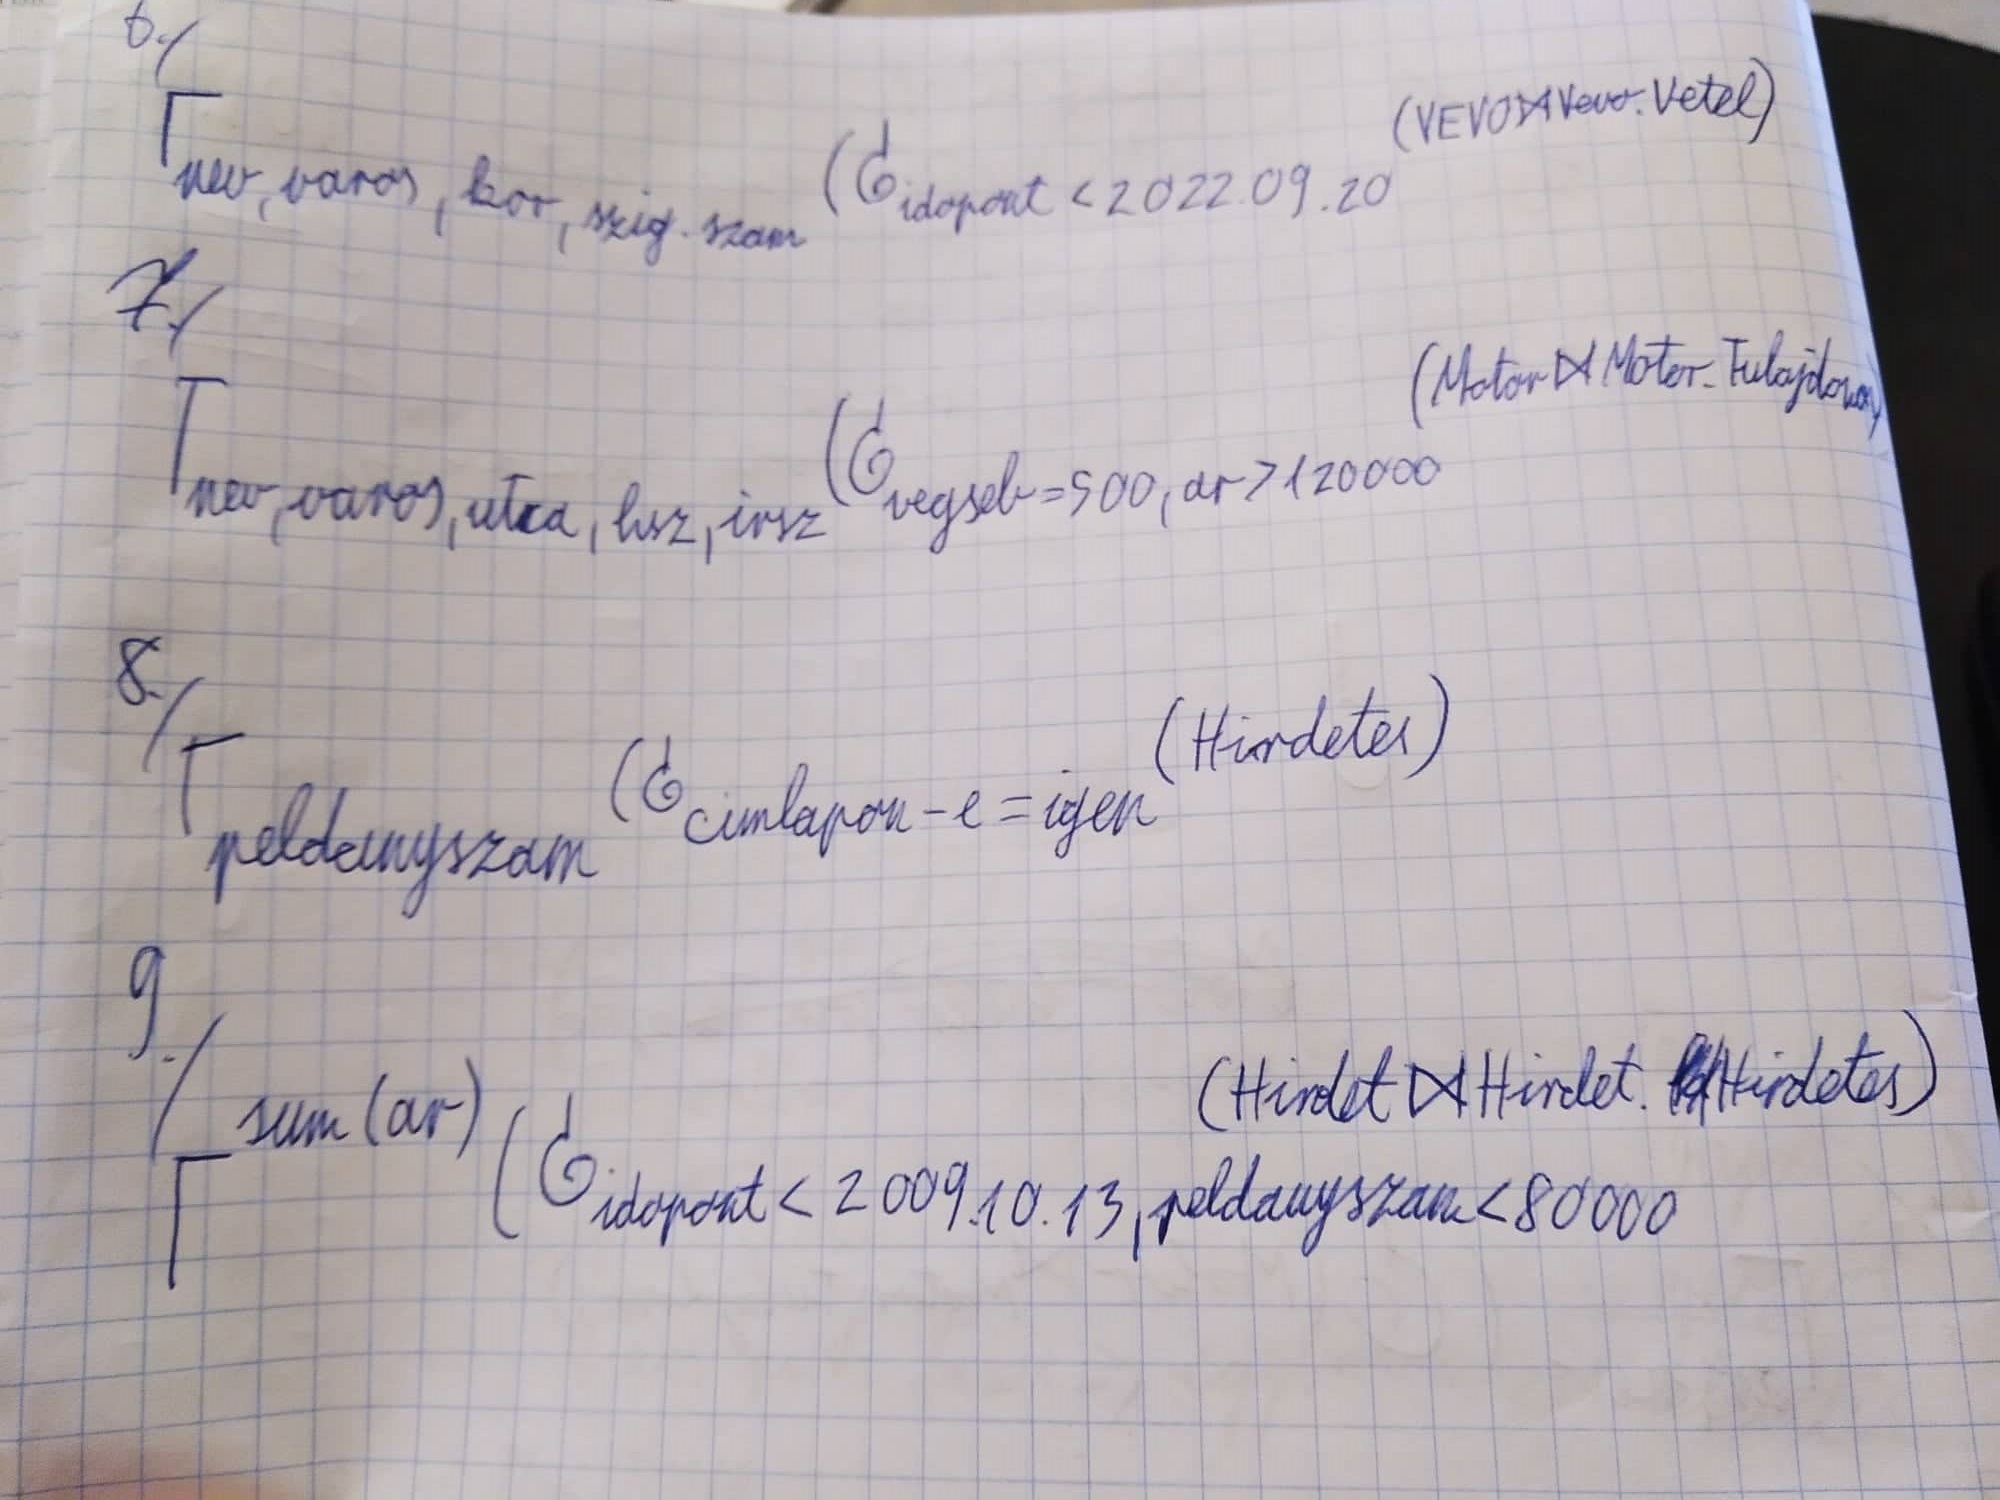 6./
Γ nev, varos, kor, szig.szam (σ idopont < 2022.09.20 (VEVO⋈Vevo.Vetel)
7./
Γ nev, varos, utca, hsz, irsz (σ vegseb=500, ar>120000 (Motor⋈Motor.Tulajdonos)
8./
Γ peldanyszam (σ cimlapon-e=igen (Hirdetes)
9./
Γ sum(ar) (σ idopont < 2009.10.13, peldanyszam<80000 (Hirdet⋈Hirdet.Hirdetes)